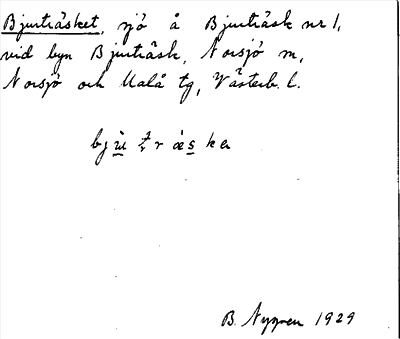 Bjurträsket, sjö å Bjurträsk nr 1,
vid byn Bjurträsk, Norsjö sn,
Norsjö och Malå tg, Västerb. l.
B. Nygren 1929